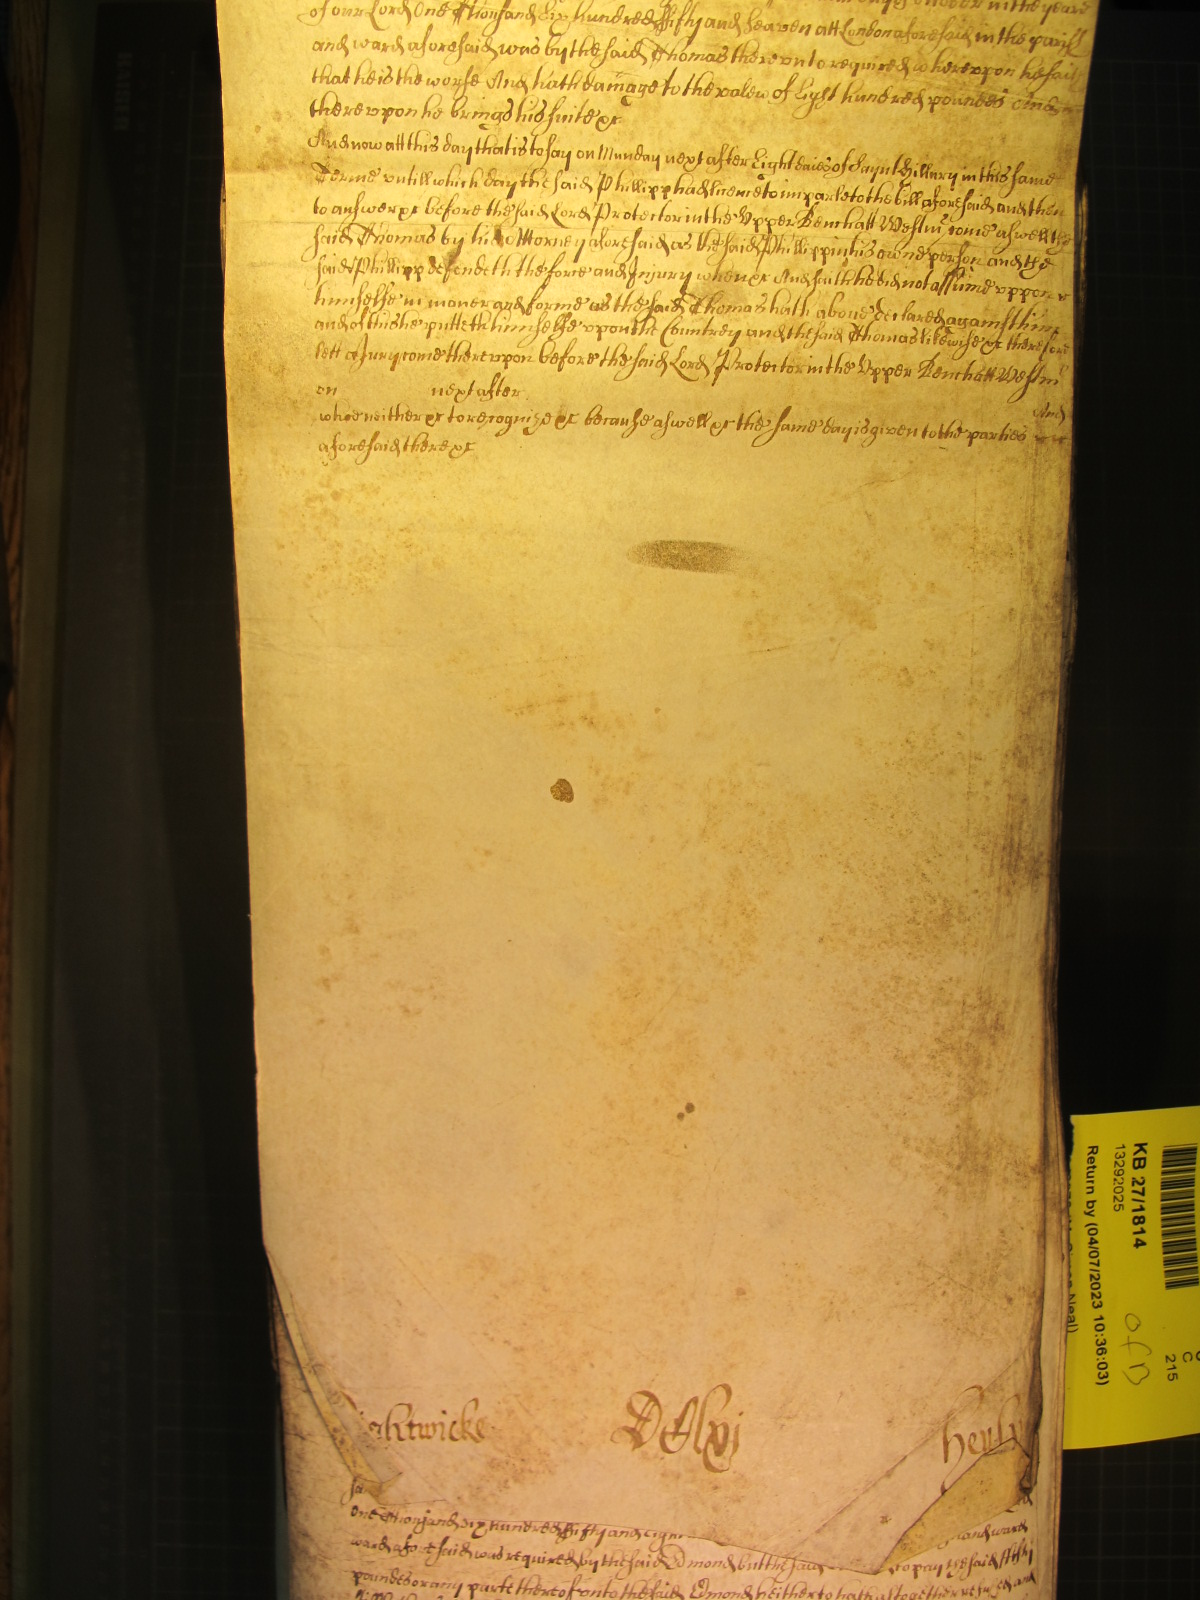 of our Lord One Thousand six hundred ffifty and seaven att London aforesaid in the parish
and ward aforesaid was by the said Thomas thereunto required whereupon he saith
that he is the worse And hath damage to the valew of Eight hundred poundes And
thereupon he brings his suite &c
And now att this day that is to say on Munday next after Eight daies of Saynt Hillary in this same
Terme untill which day the said Phillipp had licence to imparle to the bill aforesaid and then
to answer &c before the said Lord Protector in the Upper Bench att Westm come aswell the
said Thomas by his Attorney aforesaid as the said Phillipp in his owne person and the
said Phillipp defendeth the force and Injury when &c And saith he did not assume uppon
himselfe in maner and forme as the said Thomas hath above declared against him
and of this he putteth himselfe upon the Countrey and the said Thomas likewise &c therefore
lett a Jury come thereupon before the said Lord Protector in the Upper Bench att Westm
on next after And
who neither &c to recognize &c because aswell &c the same day is given to the parties
aforesaid there &c
htwicke DClxj Henly
sa
One Thousand six hundred ffifty and Eight and ward
ward aforesaid was required by the said Edmond but the said to pay the said ffifty
poundes or any parte thereof unto the said Edmond hitherto hath altogether refused and
KB 27/1814
13292025
Return by (04/07/2023 10:36:03)
C
215
Simon Neal)